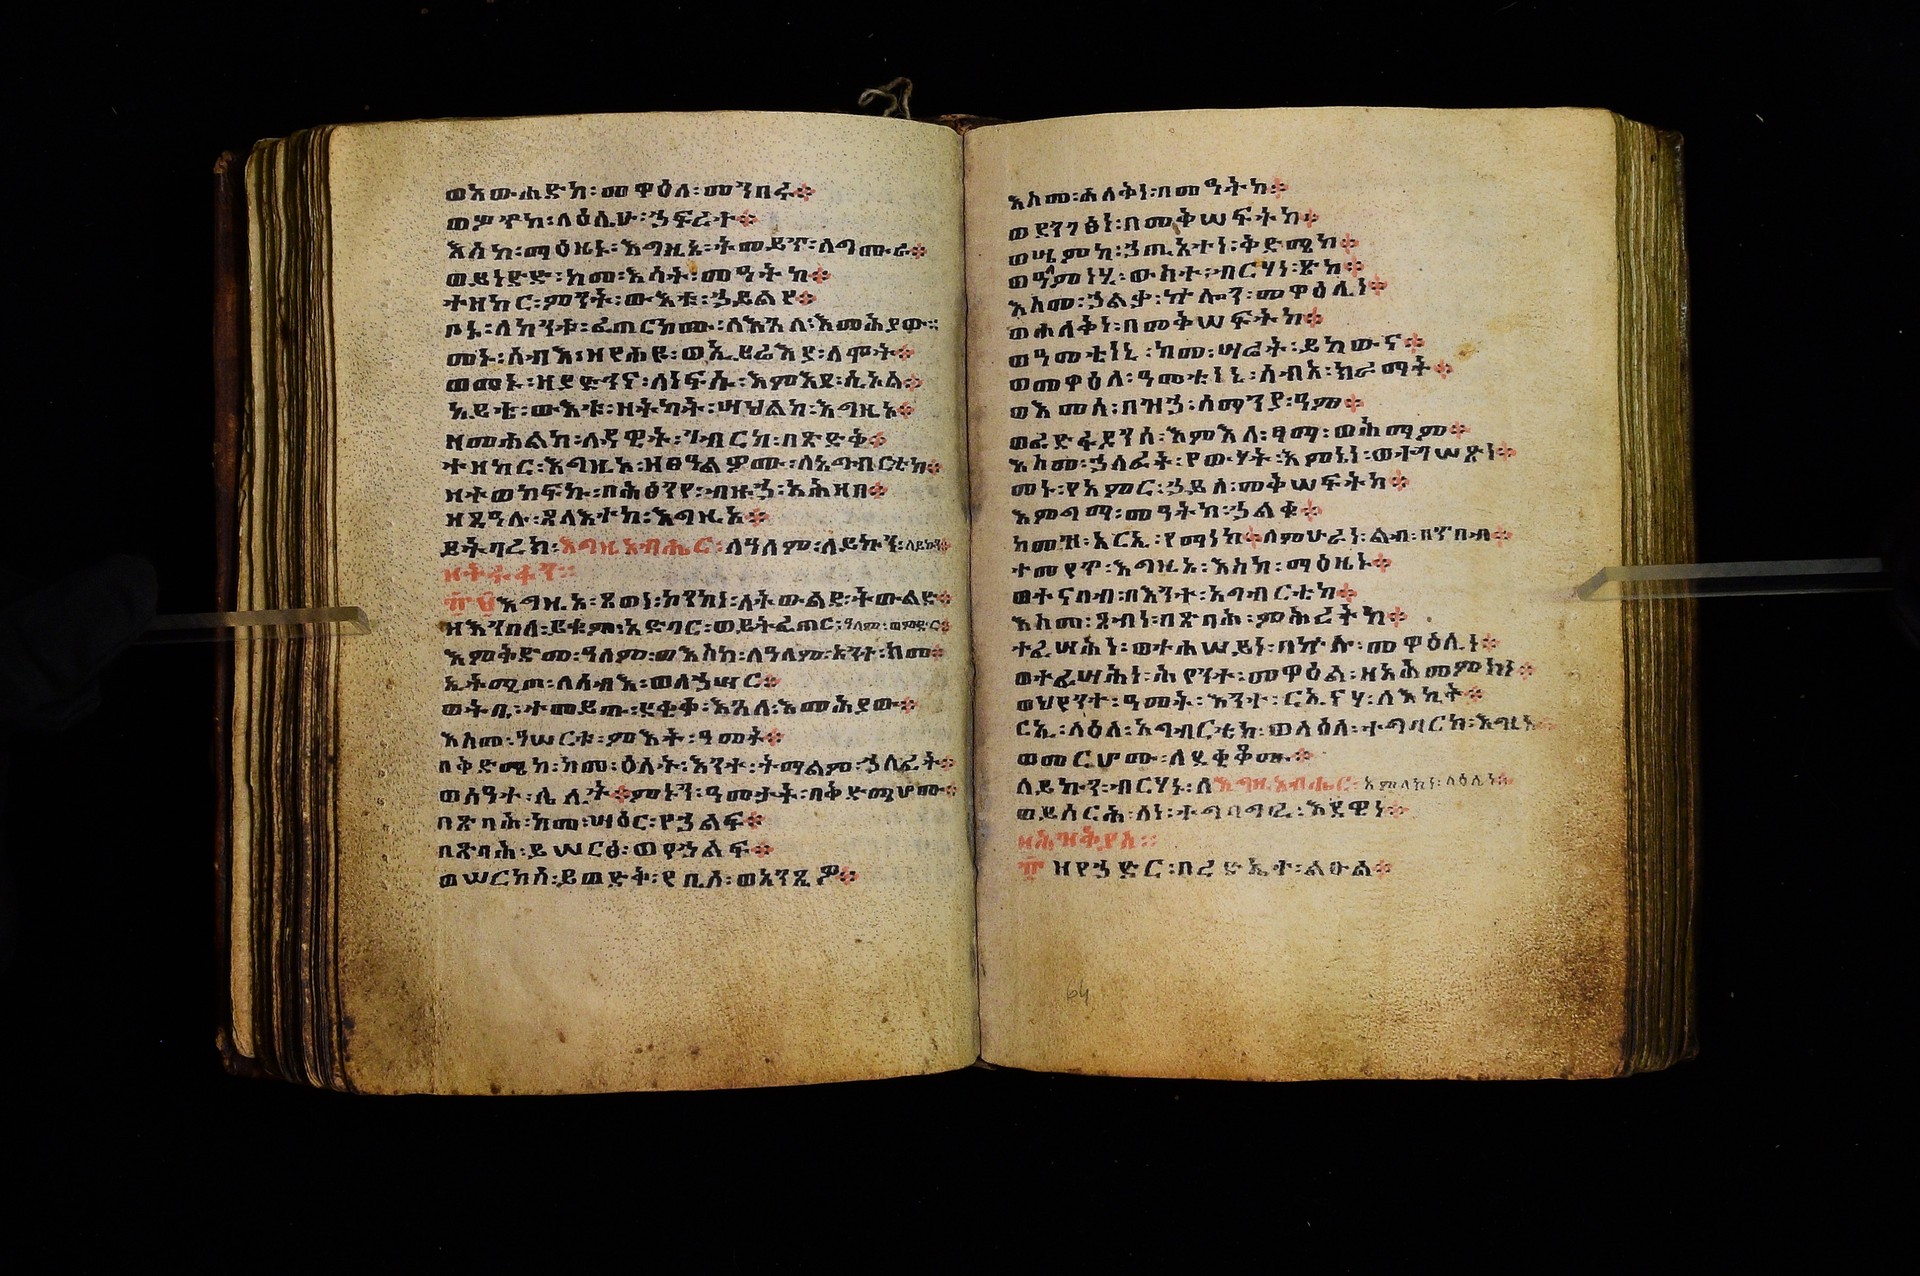 ወአውሐድከ፡መዋዕለ፡መንበሩ፨
ወሦጥከ፡ላዕሌሁ፡ኃፍረተ፨
እስከ፡ማዕዜኑ፡እግዚኦ፡ትመይጥ፡ለግሙራ፨
ወይነድድ፡ከመ፡እሳት፡መዓትከ፨
ተዘከር፡ምንት፡ውእቱ፡ኃይልየ፨
ቦኑ፡ለከንቱ፡ፈጠርኮሙ፡ለእጓለ፡እመሕያው፨
መኑ፡ሰብእ፡ዘየሐዩ፡ወኢይሬእያ፡ለሞት፨
ወመኑ፡ዘያድኅና፡ለነፍሱ፡እምእደ፡ሲኦል፨
አይቴ፡ውእቱ፡ዘትካት፡ሣህልከ፡እግዚኦ፨
ዘመሐልከ፡ለዳዊት፡ገብርከ፡በጽድቅ፨
ተዘከር፡እግዚኦ፡ዘፀዓልዎሙ፡ለአግብርቲከ፨
ዘተወከፍኩ፡በሕፅንየ፡ብዙኃ፡አሕዛበ፨
ዘጼዓሉ፡ጸላእተከ፡እግዚኦ፨
ይትባረክ፡እግዚአብሔር፡ለዓለም፡ለይኩን፡ለይኩን፨
ዘትዱፋን፨
፹፱እግዚኦ፡ጸወነ፡ኮንከነ፡ለትውልደ፡ትውልድ፨
ዘእንበለ፡ይቁም፡አድባር፡ወይትፈጠር፡ዓለም፡ወምድር፨
እምቅድመ፡ዓለም፡ወእስከ፡ለዓለም፡አንተ፡ከመ፨
ኢትሚጦ፡ለሰብእ፡ወለኃሣር፨
ወትቤ፡ተመይጡ፡ደቂቀ፡እጓለ፡እመሕያው፨
እስመ፡ዓሠርቱ፡ምእት፡ዓመት፨
በቅድሜከ፡ከመ፡ዕለት፡እንተ፡ትማልም፡ኃለፈት፨
ወሰዓተ፡ሌሊት፨ምኑን፡ዓመታት፡በቅድሜሆሙ፨
በጽባሕ፡ከመ፡ሣዕር፡የኃልፍ፨
በጽባሕ፡ይሠርፅ፡ወየኃልፍ፨
ወሠርከሰ፡ይወድቅ፡የቢሶ፡ወአንጺዎ፨
እስመ፡ሐለቅነ፡በመዓትከ፨
ወደንገፅነ፡በመቅሠፍትከ፨
ወሤምከ፡ኃጢአተነ፡ቅድሜከ፨
ወዓምነሂ፡ውስተ፡ብርሃነ፡ጽከ፨
እስመ፡ኃልቃ፡ኵሎን፡መዋዕሊነ፨
ወሐለቅነ፡በመቅሠፍትከ፨
ወዓመቲነኒ፡ከመ፡ሣሬት፡ይከውና፨
ወመዋዕለ፡ዓመቲነኒ፡ሰብዓ፡ክራማት፨
ወእመሰ፡በዝኃ፡ሰማንያ፡ዓም፨
ወፈድፋደንሰ፡እምእለ፡ፃማ፡ወሕማም፨
እስመ፡ኃለፈት፡የውሃት፡እምኔነ፡ወተገሠጽነ፨
መኑ፡የአምር፡ኃይለ፡መቅሠፍትከ፨
እምግማ፡መዓትከ፡ኃልቁ፨
ከመዝ፡አርኢ፡የማነከ፨ለምሁራነ፡ልብ፡በጥበብ፨
ተመየጥ፡እግዚኦ፡እስከ፡ማዕዜኑ፨
ወተናበብ፡በእንተ፡አግብርቲከ፨
እስመ፡ጸገብነ፡በጽባሕ፡ምሕረትከ፨
ተፈሣሕነ፡ወተሐሠይነ፡በኵሉ፡መዋዕሊነ፨
ወተፈሣሕነ፡ሕየንተ፡መዋዕል፡ዘአሕመምከነ፨
ወህየንተ፡ዓመት፡እንተ፡ርኢናሃ፡ለእኪት፨
ርኢ፡ላዕለ፡አግብርቲከ፡ወላዕለ፡ተግባርከ፡እግዚኦ፨
ወመርሆሙ፡ለደቂቆሙ፨
ለይኩን፡ብርሃኑ፡ለእግዚአብሔር፡አምላክነ፡ላዕሌነ፨
ወይሰርሕ፡ለነ፡ተግባረ፡እደዊነ፨
ዘሕዝቅያስ፨
፺ዘየኃድር፡በረድኤተ፡ልዑል፨
64